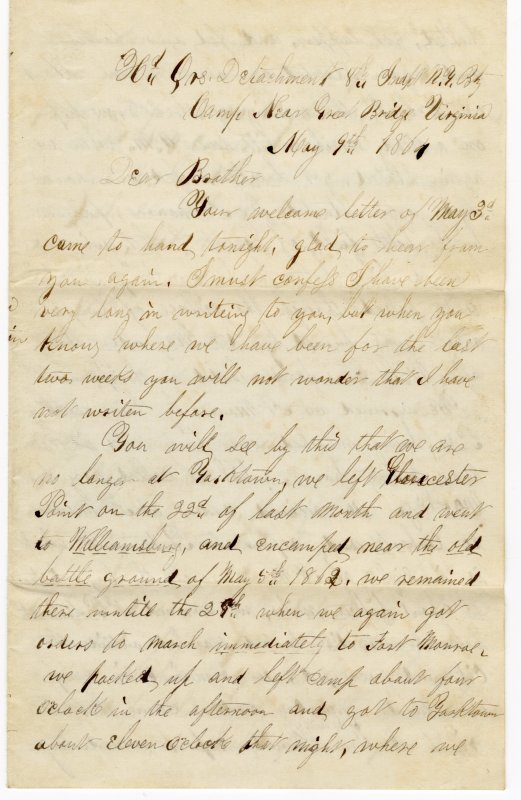 Hd Qrs. Detachment 8th Ind N.Y. Bty
Camp Near Great Bridge Virginia
May 9th 1864
Dear Brother
Your welcome letter of May 3d
came to hand tonight, glad to hear from
you again. I must confess I have been
very long in writing to you, but when you
know where we have been for the last
two weeks you will not wonder that I have
not writen before.
You will see by this that we are
no longer at Yorktown, we left Gloucester
Point on the 22d of last month and went
to Williamsburg, and encamped near the old
battle ground of May 5th 1862. we remained
there untile the 28th when we again got
orders to march immediately to Fort Monroe.
we packed up and left camp about four
oclock in the afternoon and got to Yorktown
about eleven oclock that night, where we